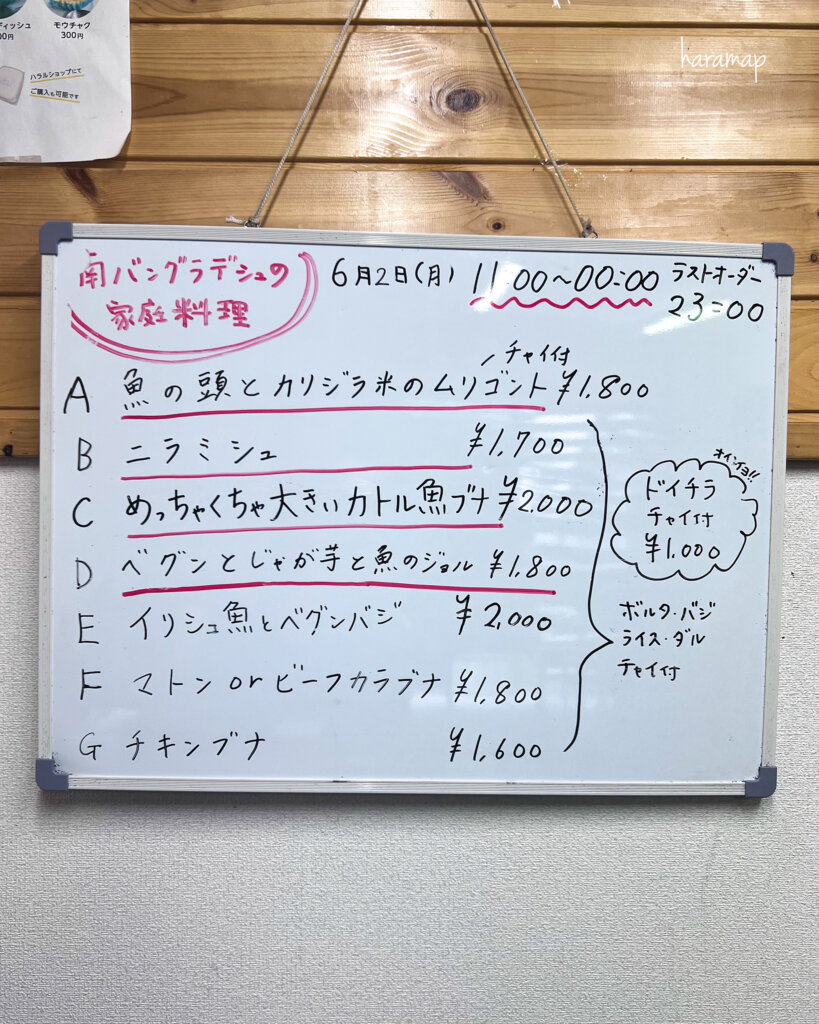 ディッシュ
00円
モウチャク
300円
ハラルショップにて
ご購入も可能です
haramap
南バングラデシュの
家庭料理
6月2日(月) 11:00~00:00 ラストオーダー
23:00
チャイ付
A 魚の頭とカリジラ米のムリゴント ¥1,800
B ニラミシュ ¥1,700
C めっちゃくちゃ大きいカトル魚ブナ ¥2,000
D ベグンとじゃが芋と魚のジョル ¥1,800
E イリシュ魚とベグンバジ ¥2,000
F マトン or ビーフカラブナ ¥1,800
G チキンブナ ¥1,600
オイシイヨ!!
ドイチラ
チャイ付
¥1,000
ボルタ・バジ
ライス・ダル
チャイ付